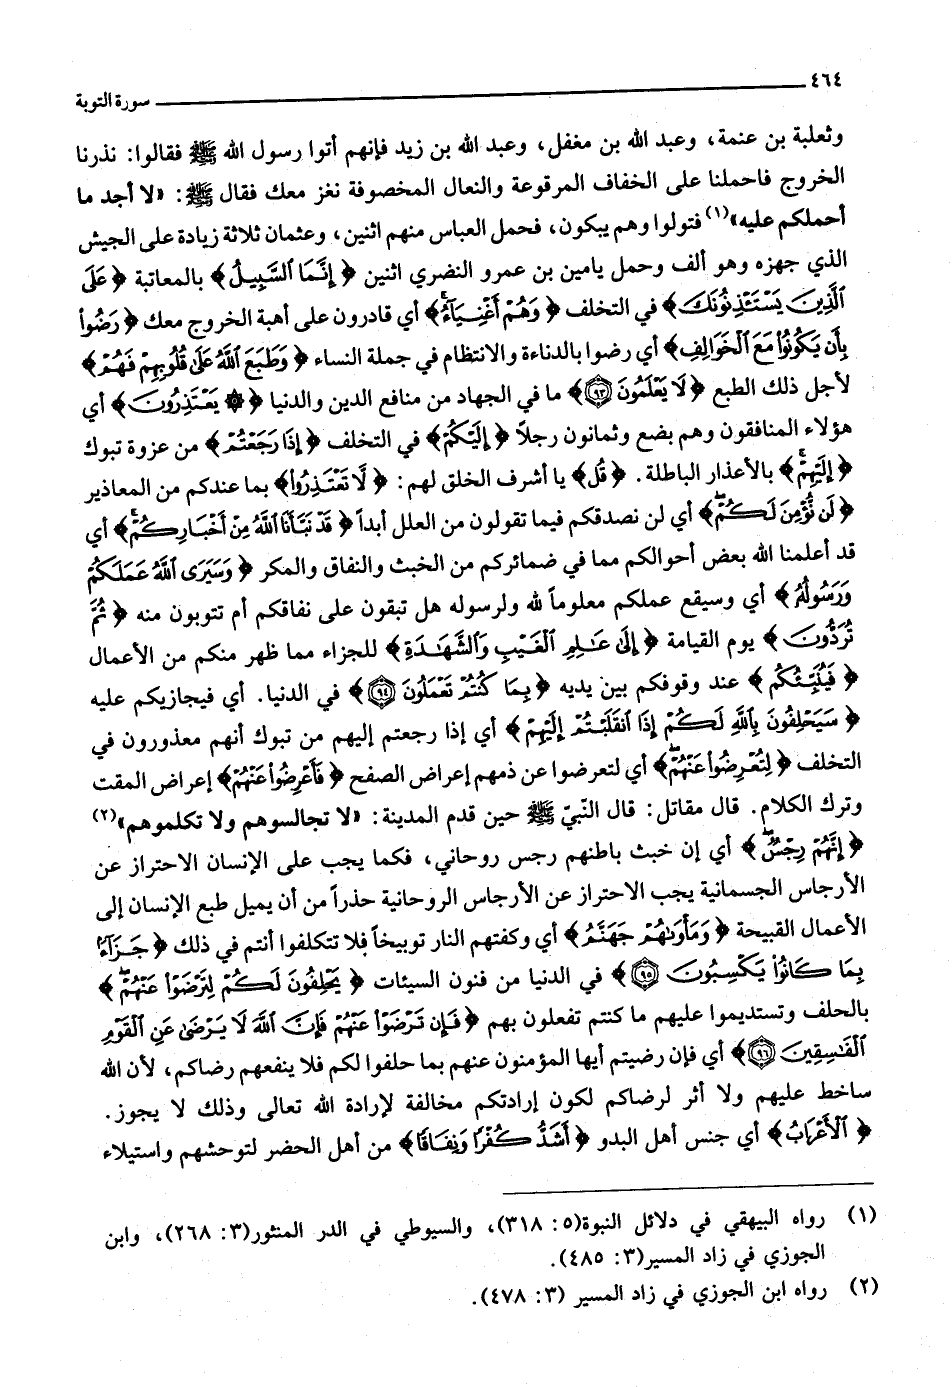 ٤٦٤ سورة التوبة
وثعلبة بن عنمة، وعبد الله بن مغفل، وعبد الله بن زيد فإنهم أتوا رسول الله ﷺ فقالوا: نذرنا
الخروج فاحملنا على الخفاف المرقوعة والنعال المخصوفة نغز معك فقال ﷺ: «لا أجد ما
أحملكم عليه»(١) فتولوا وهم يبكون، فحمل العباس منهم اثنين، وعثمان ثلاثة زيادة على الجيش
الذي جهزه وهو ألف وحمل يامين بن عمرو النضري اثنين ﴿إِنَّمَا ٱلسَّبِيلُ﴾ بالمعاتبة ﴿عَلَى
ٱلَّذِينَ يَسْتَـْٔذِنُونَكَ﴾ في التخلف ﴿وَهُمْ أَغْنِيَآءُ﴾ أي قادرون على أهبة الخروج معك ﴿رَضُوا۟
بِأَن يَكُونُوا۟ مَعَ ٱلْخَوَالِفِ﴾ أي رضوا بالدناءة والانتظام في جملة النساء ﴿وَطَبَعَ ٱللَّهُ عَلَىٰ قُلُوبِهِمْ فَهُمْ﴾
لأجل ذلك الطبع ﴿لَا يَعْلَمُونَ ٩٣﴾ ما في الجهاد من منافع الدين والدنيا ﴿۞ يَعْتَذِرُونَ﴾ أي
هؤلاء المنافقون وهم بضع وثمانون رجلاً ﴿إِلَيْكُمْ﴾ في التخلف ﴿إِذَا رَجَعْتُمْ﴾ من عزوة تبوك
﴿إِلَيْهِمْ﴾ بالأعذار الباطلة. ﴿قُل﴾ يا أشرف الخلق لهم: ﴿لَّا تَعْتَذِرُوا۟﴾ بما عندكم من المعاذير
﴿لَن نُّؤْمِنَ لَكُمْ﴾ أي لن نصدقكم فيما تقولون من العلل أبداً ﴿قَدْ نَبَّأَنَا ٱللَّهُ مِنْ أَخْبَارِكُمْ﴾ أي
قد أعلمنا الله بعض أحوالكم مما في ضمائركم من الخبث والنفاق والمكر ﴿وَسَيَرَى ٱللَّهُ عَمَلَكُمْ
وَرَسُولُهُ﴾ أي وسيقع عملكم معلوماً لله ولرسوله هل تبقون على نفاقكم أم تتوبون منه ﴿ثُمَّ
تُرَدُّونَ﴾ يوم القيامة ﴿إِلَىٰ عَـٰلِمِ ٱلْغَيْبِ وَٱلشَّهَـٰدَةِ﴾ للجزاء مما ظهر منكم من الأعمال
﴿فَيُنَبِّئُكُم﴾ عند وقوفكم بين يديه ﴿بِمَا كُنتُمْ تَعْمَلُونَ ٩٤﴾ في الدنيا. أي فيجازيكم عليه
﴿سَيَحْلِفُونَ بِٱللَّهِ لَكُمْ إِذَا ٱنقَلَبْتُمْ إِلَيْهِمْ﴾ أي إذا رجعتم إليهم من تبوك أنهم معذورون في
التخلف ﴿لِتُعْرِضُوا۟ عَنْهُمْ﴾ أي لتعرضوا عن ذمهم إعراض الصفح ﴿فَأَعْرِضُوا۟ عَنْهُمْ﴾ إعراض المقت
وترك الكلام. قال مقاتل: قال النّبيّ ﷺ حين قدم المدينة: «لا تجالسوهم ولا تكلموهم»(٢)
﴿إِنَّهُمْ رِجْسٌ﴾ أي إن خبث باطنهم رجس روحاني، فكما يجب على الإنسان الاحتراز عن
الأرجاس الجسمانية يجب الاحتراز عن الأرجاس الروحانية حذراً من أن يميل طبع الإنسان إلى
الأعمال القبيحة ﴿وَمَأْوَىٰهُمْ جَهَنَّمُ﴾ أي وكفتهم النار توبيخاً فلا تتكلفوا أنتم في ذلك ﴿جَزَآءًۢ
بِمَا كَانُوا۟ يَكْسِبُونَ ٩٥﴾ في الدنيا من فنون السيئات ﴿يَحْلِفُونَ لَكُمْ لِتَرْضَوْا۟ عَنْهُمْ﴾
بالحلف وتستديموا عليهم ما كنتم تفعلون بهم ﴿فَإِن تَرْضَوْا۟ عَنْهُمْ فَإِنَّ ٱللَّهَ لَا يَرْضَىٰ عَنِ ٱلْقَوْمِ
ٱلْفَـٰسِقِينَ ٩٦﴾ أي فإن رضيتم أيها المؤمنون عنهم بما حلفوا لكم فلا ينفعهم رضاكم، لأن الله
ساخط عليهم ولا أثر لرضاكم لكون إرادتكم مخالفة لإرادة الله تعالى وذلك لا يجوز.
﴿ٱلْأَعْرَابُ﴾ أي جنس أهل البدو ﴿أَشَدُّ كُفْرًا وَنِفَاقًا﴾ من أهل الحضر لتوحشهم واستيلاء
(١) رواه البيهقي في دلائل النبوة(٥: ٣١٨)، والسيوطي في الدر المنثور(٣: ٢٦٨)، وابن
الجوزي في زاد المسير(٣: ٤٨٥).
(٢) رواه ابن الجوزي في زاد المسير (٣: ٤٧٨).